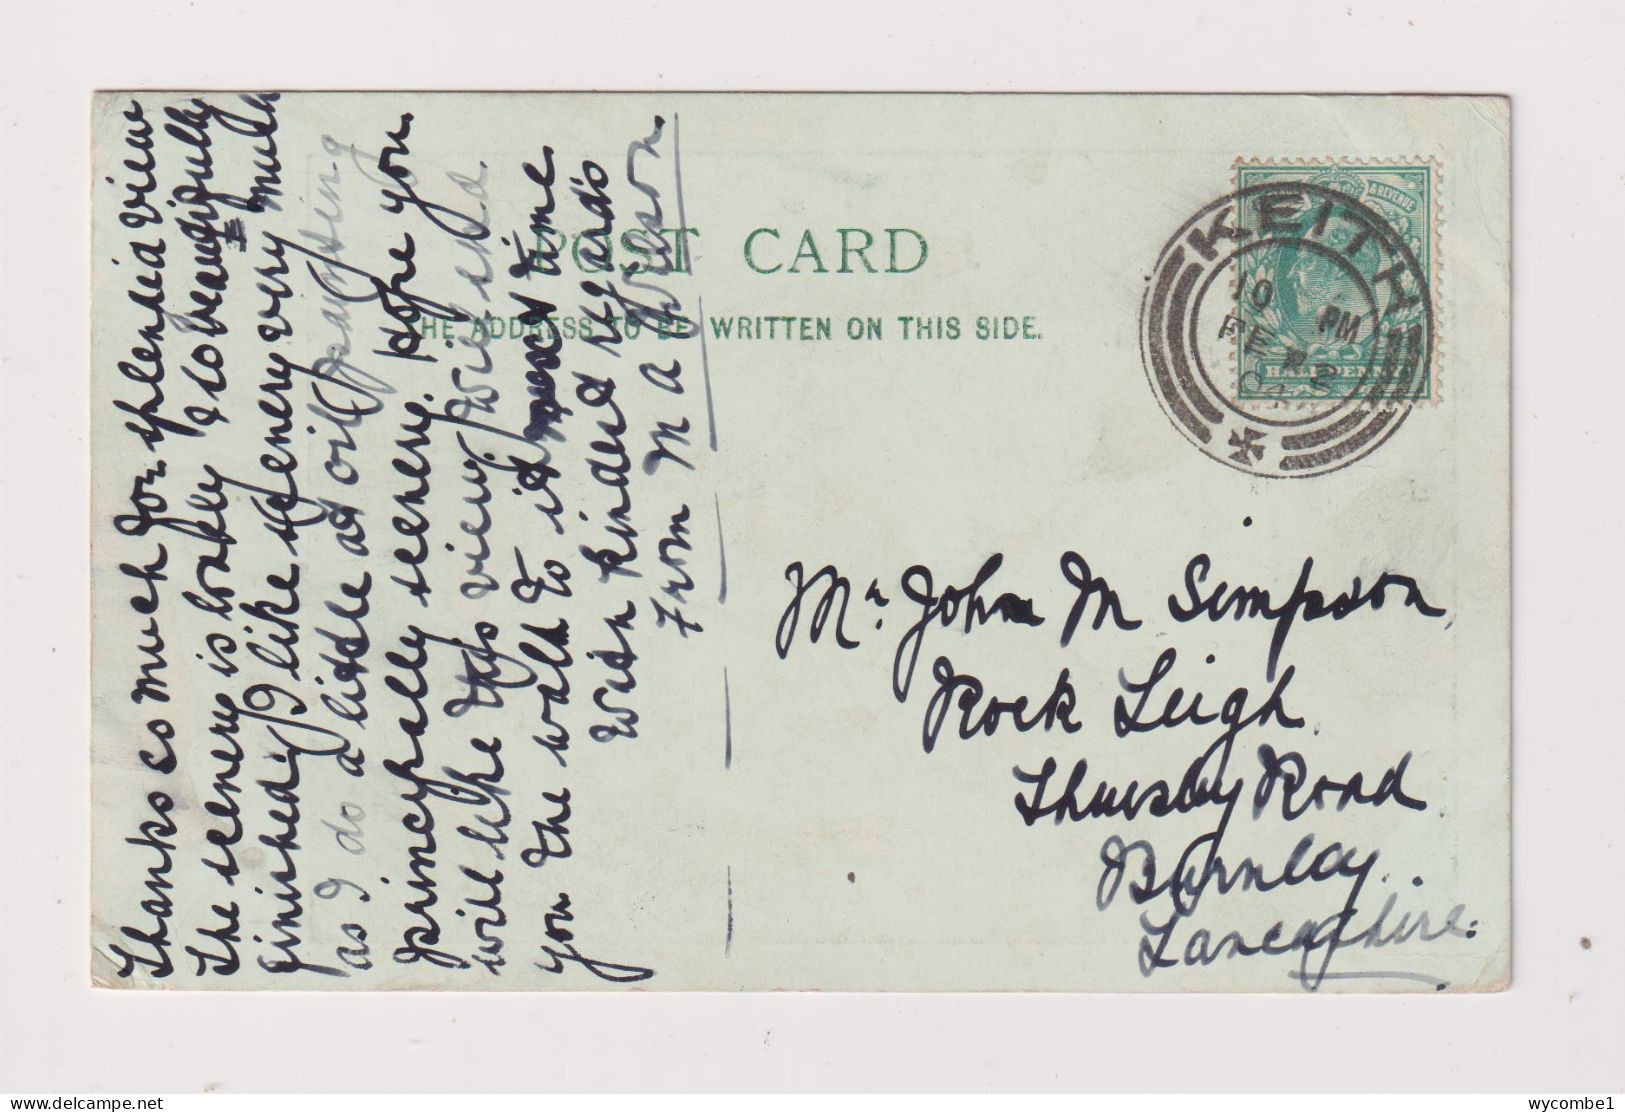 Thanks so much for splendid view
The scenery is lovely & so beautifully
finished. I like scenery very much
as I do a little at oil painting
principally scenery. Hope you
will like this view. Will send
you the walk to it next time
With kindest regards
From M A Wilson
POST CARD
THE ADDRESS TO BE WRITTEN ON THIS SIDE.
KEITH
10 PM
FE 2
& REVENUE
HALFPENNY
Mr John M Simpson,
Rock Leigh
Thursby Road
Burnley.
Lancashire.
wycombe1